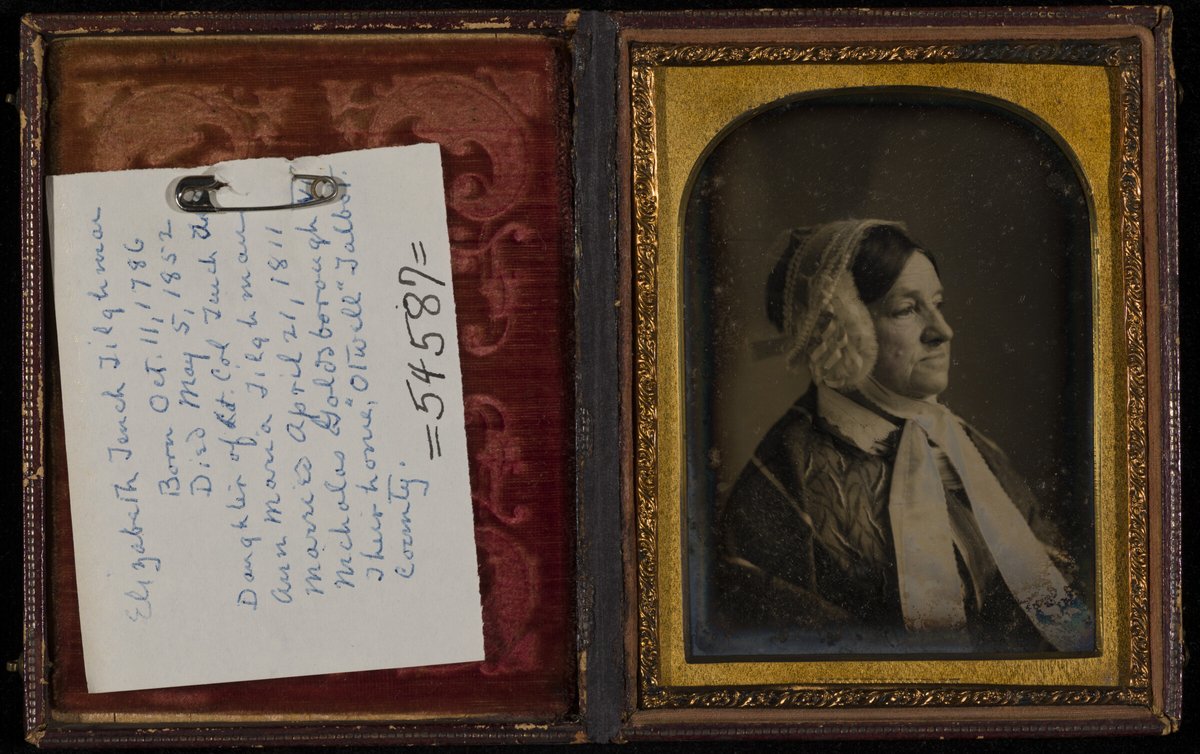 Elizabeth Tench Tilghman
Born Oct. 11, 1786
Died May 5, 1852
Daughter of Lt. Col Tench and
Ann Maria Tilghman
Married April 21, 1811
Nicholas Goldsborough
Their home, "Otwell" Talbot
County.
=54587=